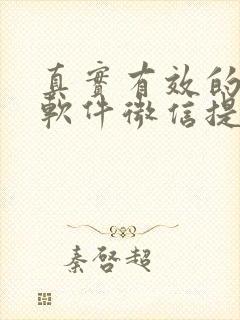 真實有效的
軟件微信提
秦啓超